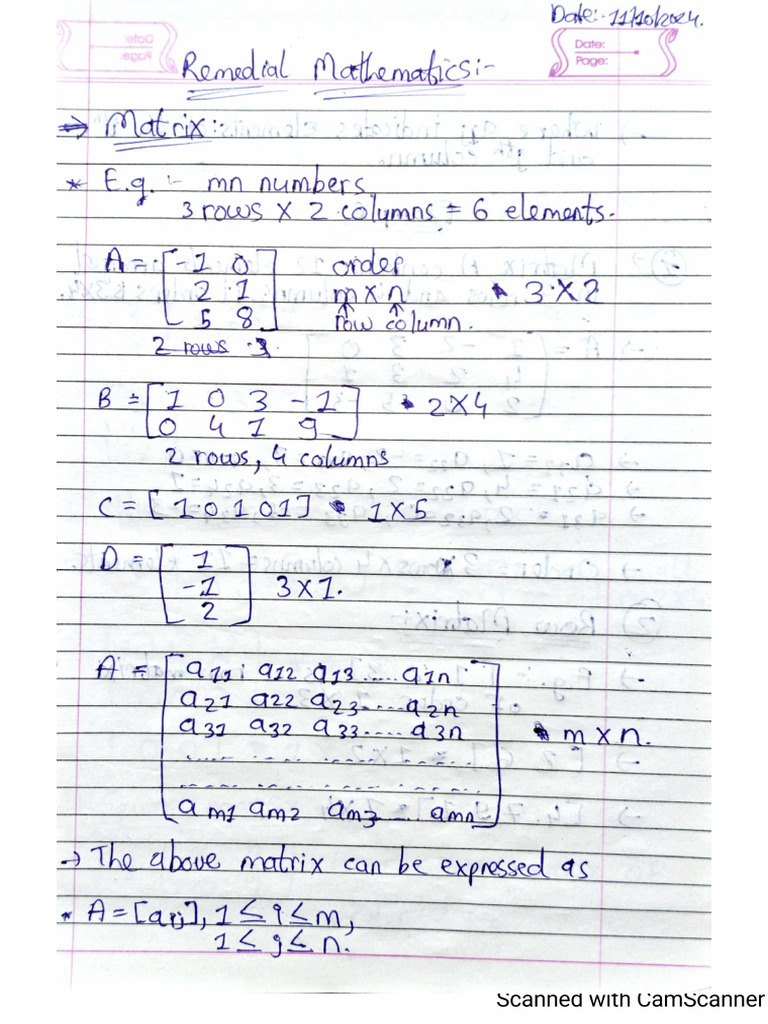 Date:- 11/10/2024.
Date:
Page:
Remedial Mathematics:-
⇒ Matrix:-
* E.g. :- mn numbers
3 rows X 2 columns = 6 elements.
A = [-1 0 order
2 1 m x n 3 X 2
5 8] ↑row ↑column.
2 rows
B = [1 0 3 -1 2 X 4
0 4 1 9]
2 rows, 4 columns
C = [1 0 1 0 1] 1 X 5
D = [1
-1 3 X 1.
2]
A = [a11 a12 a13 ..... a1n
a21 a22 a23 ..... a2n
a31 a32 a33 ..... a3n m x n.
..... ..... ..... .....
..... ..... ..... .....
am1 am2 am3 ..... amn]
→ The above matrix can be expressed as
* A = [aij], 1 ≤ i ≤ m,
1 ≤ j ≤ n.
Scanned with CamScanner